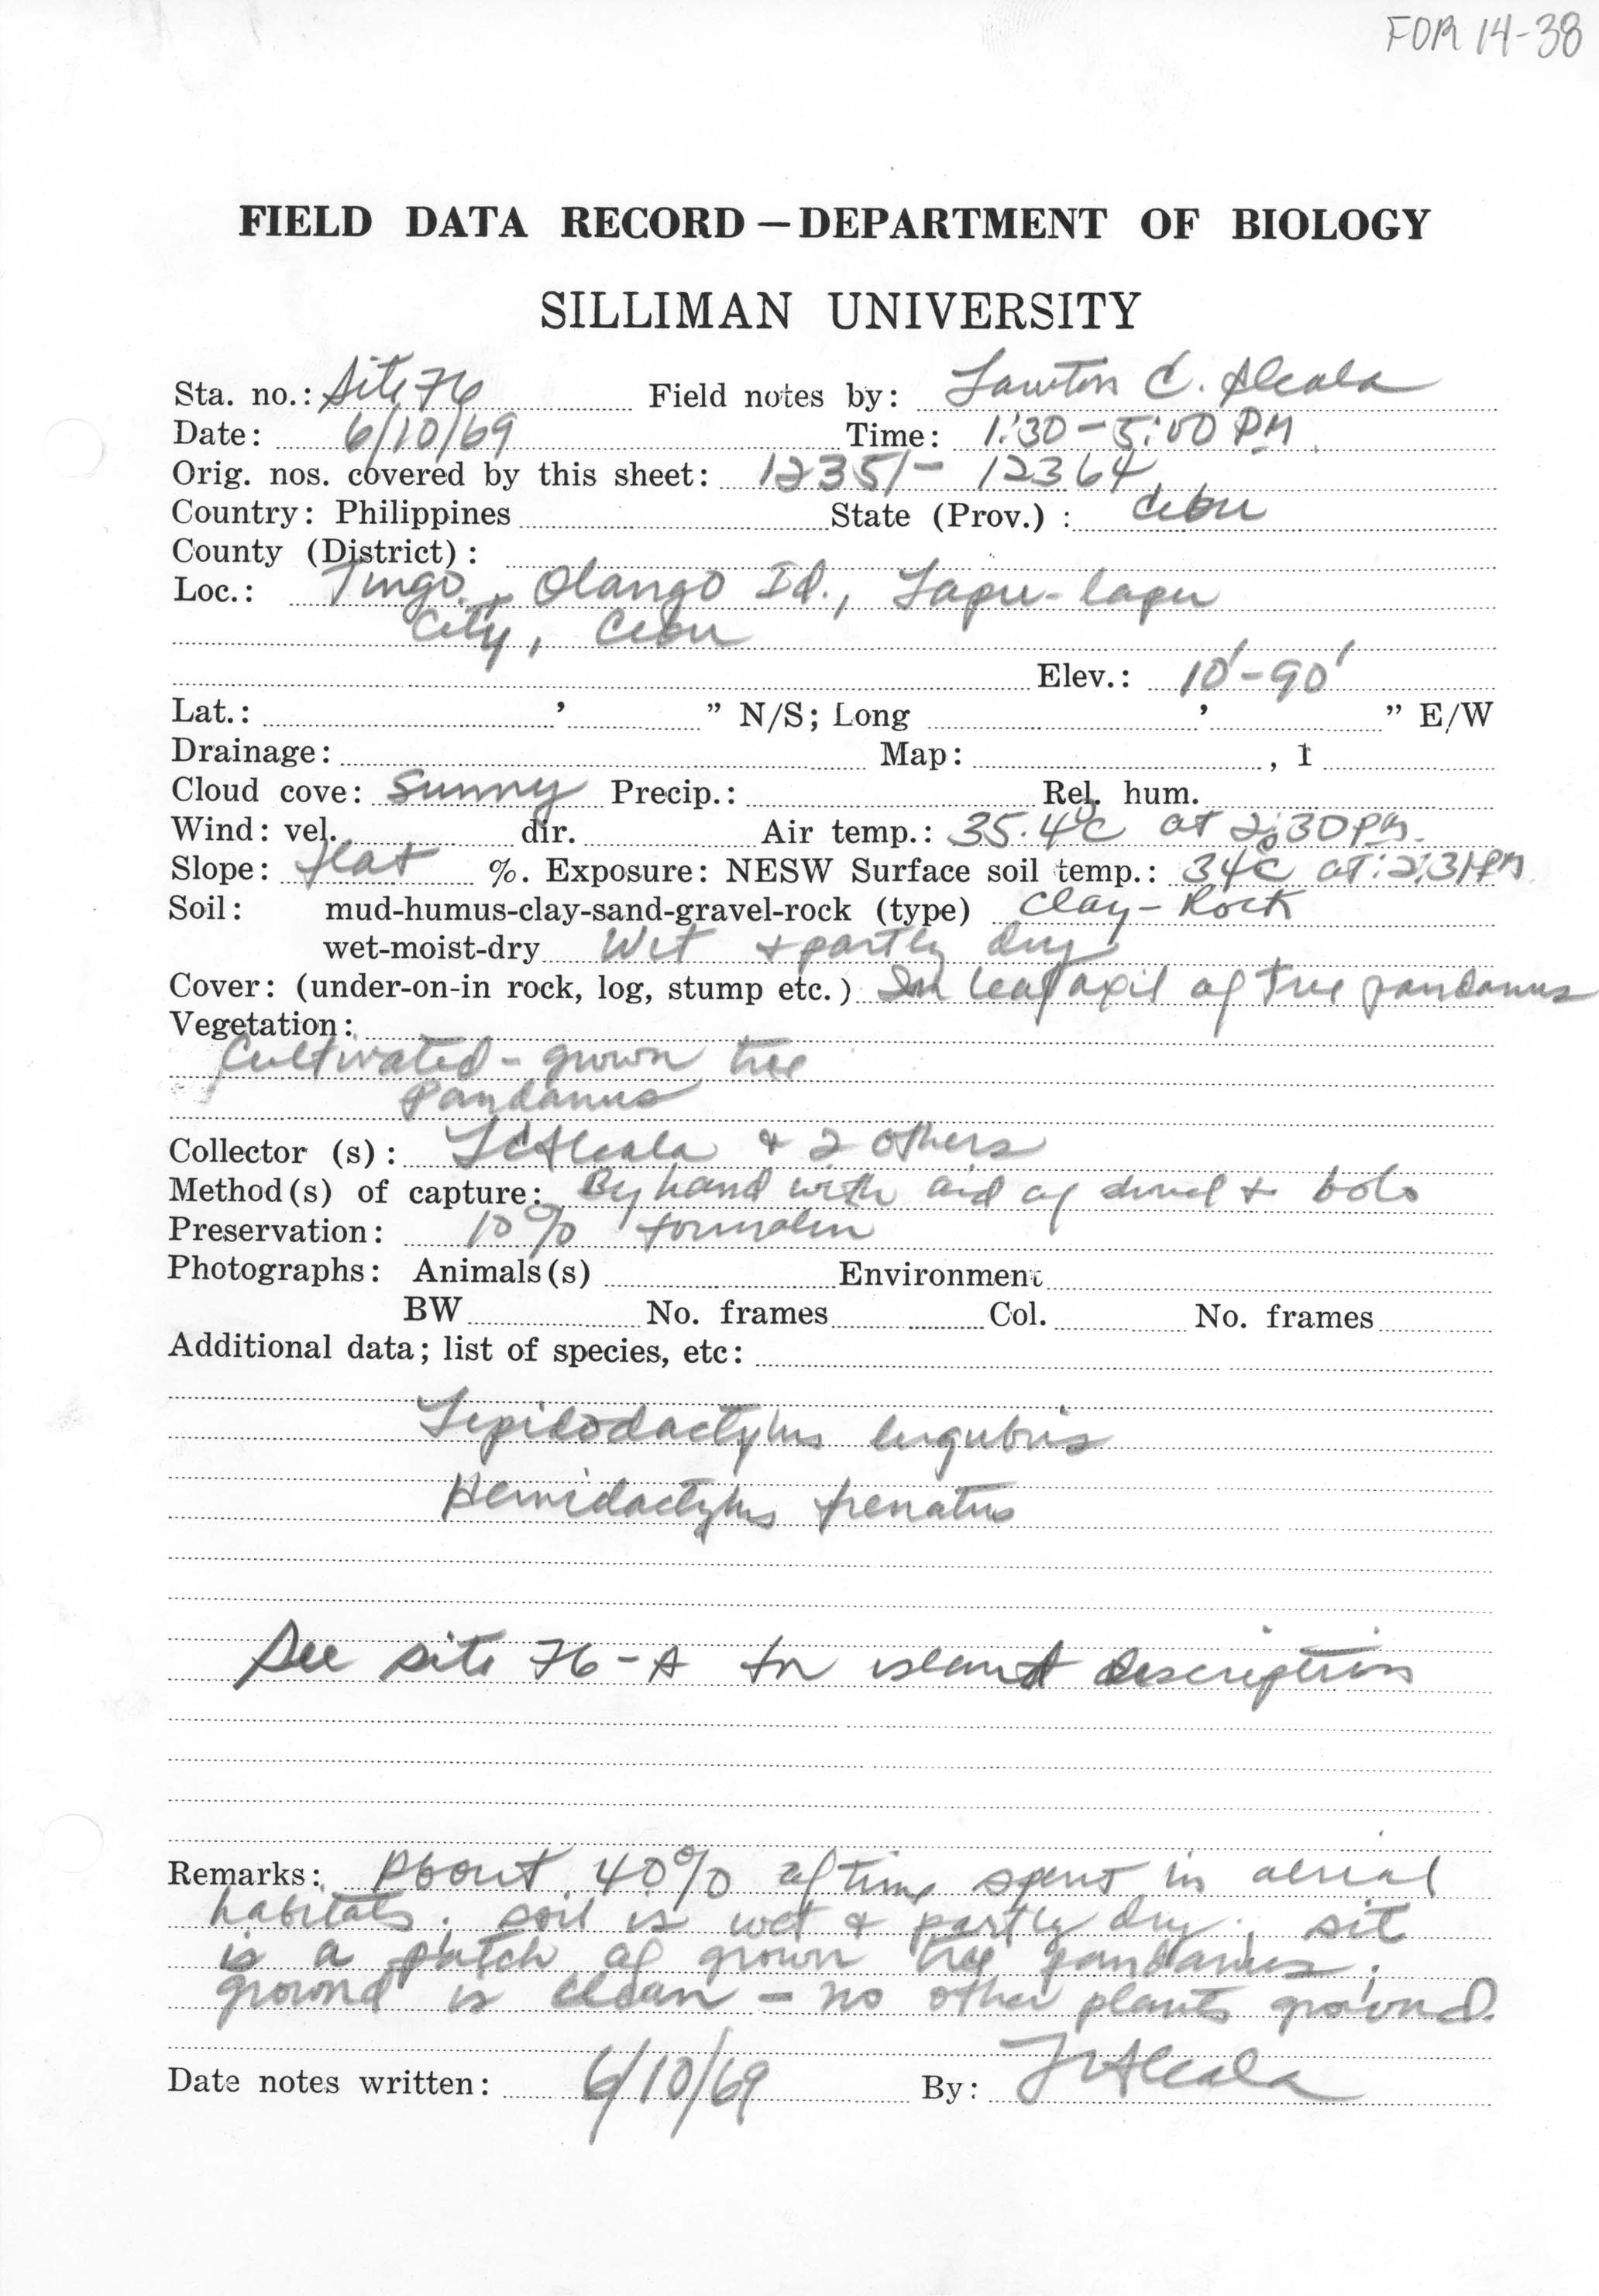 FOR 14-38
FIELD DATA RECORD — DEPARTMENT OF BIOLOGY
SILLIMAN UNIVERSITY
Sta. no.: Site 76 Field notes by: Lawton C. Alcala
Date: 6/10/69 Time: 1:30 - 5:00 PM
Orig. nos. covered by this sheet: 12351 - 12364
Country: Philippines State (Prov.) : Cebu
County (District) :
Loc.: Tingo, Olango Id., Lapu-lapu
City, Cebu
Elev.: 10' - 90'
Lat.: ' " N/S; Long ' " E/W
Drainage: Map: , 1
Cloud cove: Sunny Precip.: Rel. hum.
Wind: vel. dir. Air temp.: 35.4°C at 2:30 PM.
Slope: flat %. Exposure: NESW Surface soil temp.: 34°C at: 2:31 PM
Soil: mud-humus-clay-sand-gravel-rock (type) Clay - Rock
wet-moist-dry Wet & partly dry
Cover: (under-on-in rock, log, stump etc.) In leaf axil of tree pandanus
Vegetation:
Cultivated - grown tree
Pandanus
Collector (s) : LCAlcala & 2 others
Method(s) of capture: By hand with aid of & bolo
Preservation: 10% formalin
Photographs: Animals(s) Environment
BW No. frames Col. No. frames
Additional data; list of species, etc:
Lepidodactylus lugubris
Hemidactylus frenatus
See site 76-A for island description
Remarks: About 40% of time spent in aerial
habitats. soil is wet & partly dry. sit
is a patch of grown tree pandanus;
ground is clean - no other plants ground.
Date notes written: 6/10/69 By: LCAlcala